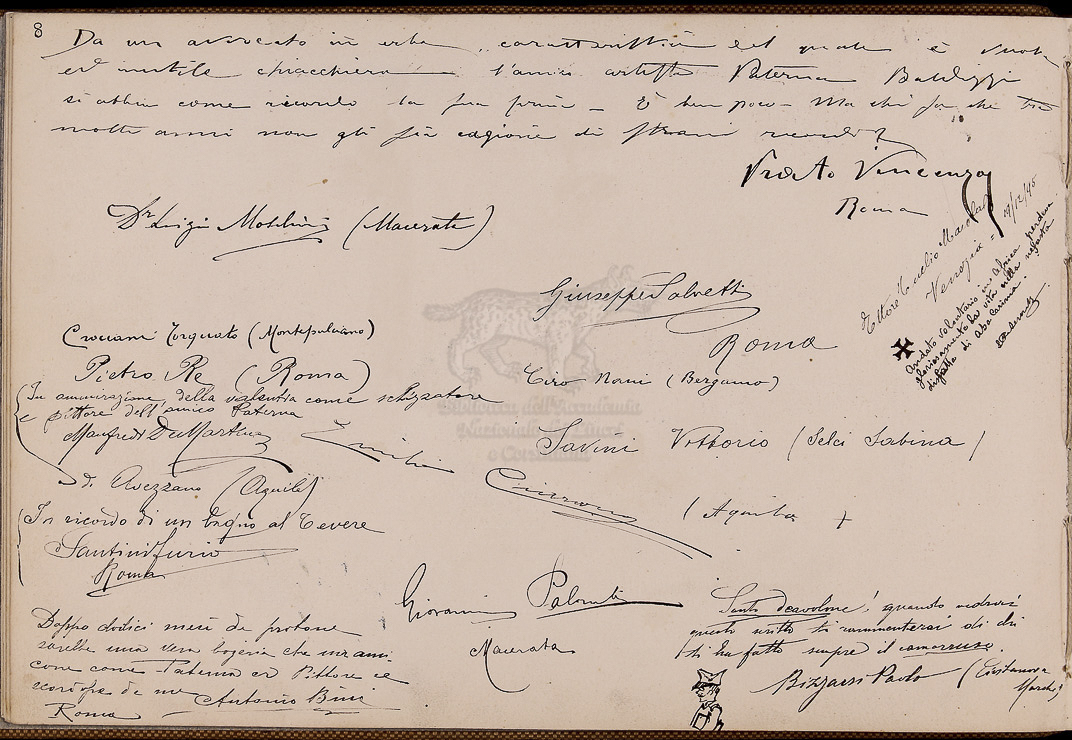 8
Da un avvocato in erba, caratteristica del quale è vuota
ed inutile chiacchiera l'amico artista Paterna Baldizzi
si abbia come ricordo la sua firma - È ben poco - Ma chi sa che tra
molti anni non gli sia cagione di strani ricordi?
Vincenzo
Roma
Dr Luigi (Macerata)
Ettore Tullio
Venezia - /12/95
Andato volontario in Africa perdeva
gloriosamente la vita nella nefasta
disfatta di Aba Carima.
Giuseppe Salvetti
Roma
Crociani Torquato (Montepulciano)
Pietro Re (Roma)
Ciro Nani (Bergamo)
In ammirazione della valentia come schizzatore
e pittore dell'amico Paterna
Manfredi De Martinis
di Avezzano (Aquila)
Biblioteca dell'Accademia
Nazionale dei Lincei
e Corsiniana
Savini Vittorio (Selci Sabina)
Emilio
(Aquila)
In ricordo di un bagno al Tevere
Santini Furio
Roma
Giovanni
Macerata
Doppo dodici mesi di
sarebbe una vera bogeria che un ami-
come come Paterna ed Pittore si
di me Antonio Bini
Roma
Senti ! quando vedrai
questo scritto ti rammenterai di chi
ti ha fatto sempre il camorrista.
Paolo (Civitanova
Marche)